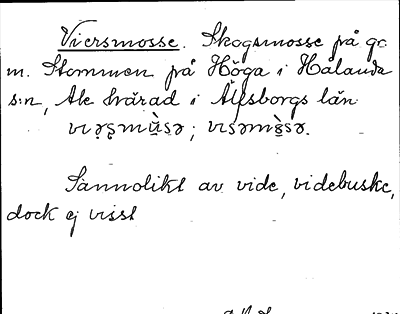 Viersmosse. Skogsmosse på
m. Stommen på Höga i Hålanda
s:n, Ale härad i Älfsborgs län

Sannolikt av vide, videbuske,
dock ej visst